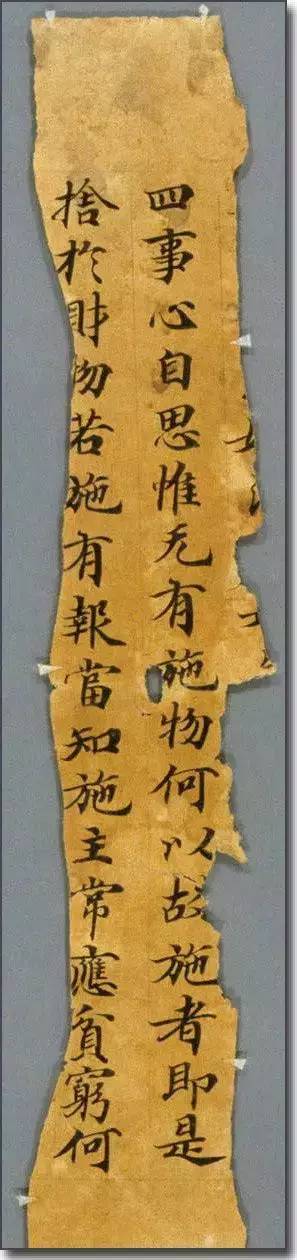 四事心自思惟无有施物何以故施者即是
捨於財物若施有報當知施主常應貧窮何